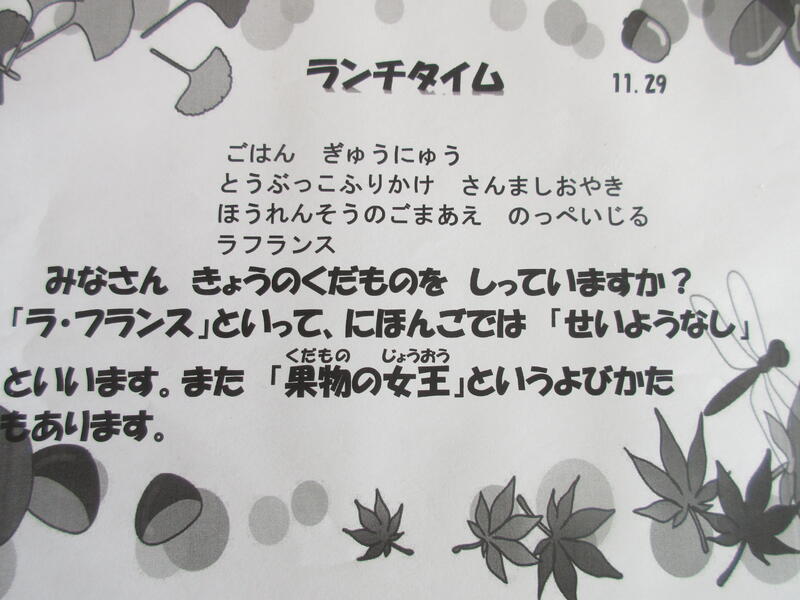 ランチタイム 11.29
ごはん ぎゅうにゅう
とうぶっこふりかけ さんましおやき
ほうれんそうのごまあえ のっぺいじる
ラフランス
みなさん きょうのくだものを しっていますか？
「ラ・フランス」といって、にほんごでは 「せいようなし」
くだもの じょうおう
といいます。また 「果物の女王」というよびかた
もあります。